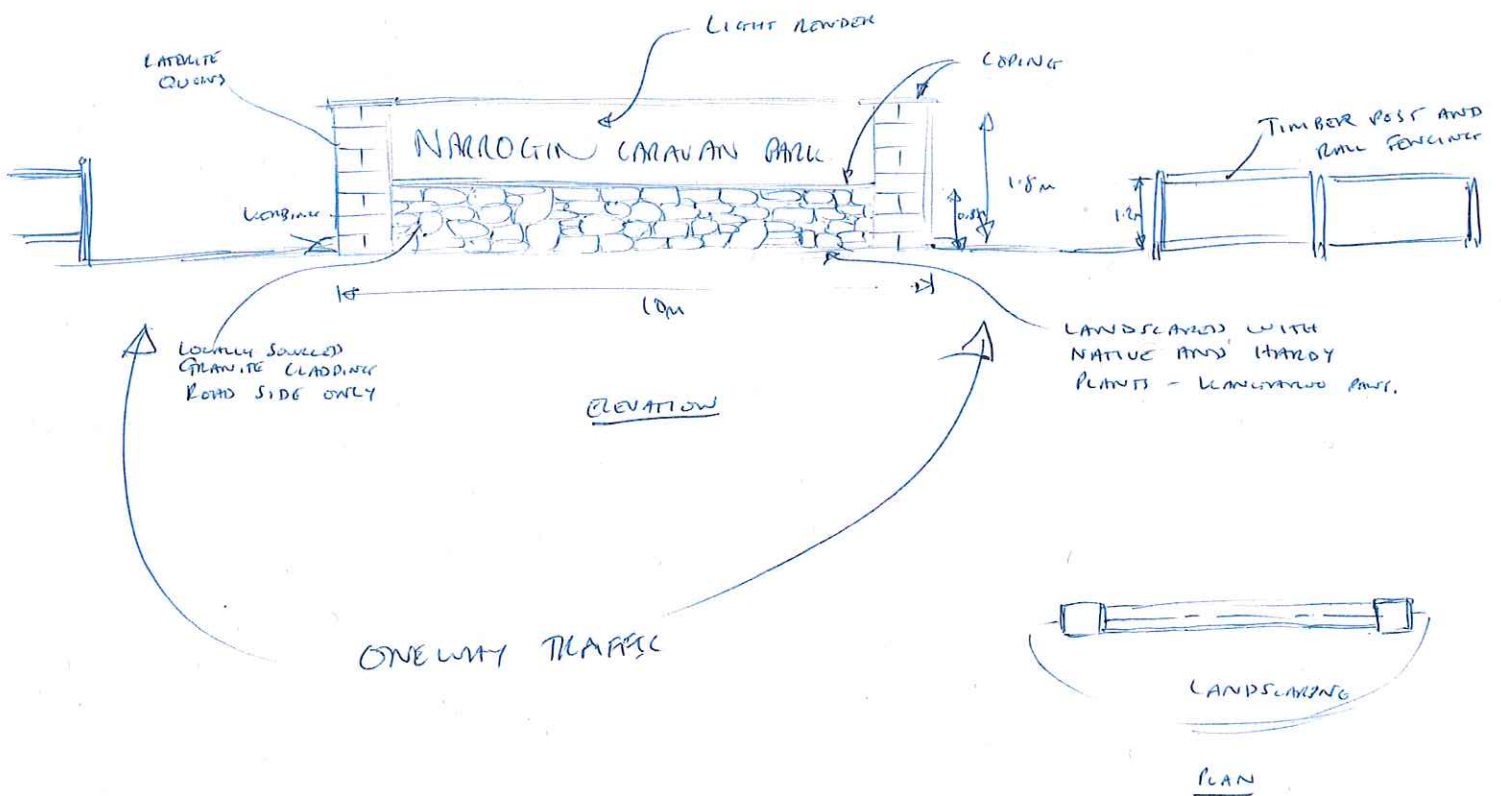 LIGHT RENDER
LATERITE
QUOINS
COPING
TIMBER POST AND
RAIL FENCING
NARROGIN CARAVAN PARK
1.8m
0.8m
1.2m
KERBING
10m
LOCALLY SOURCED
GRANITE CLADDING
ROAD SIDE ONLY
LANDSCAPED WITH
NATIVE AND HARDY
PLANTS - KANGAROO PAWS.
ELEVATION
ONEWAY TRAFFIC
LANDSCAPING
PLAN